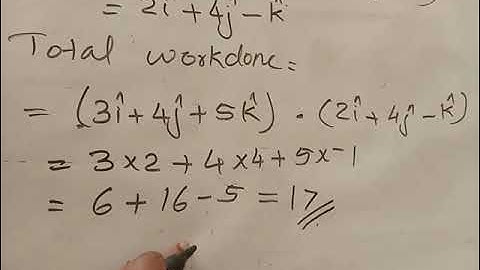 = 2î + 4ĵ - k̂
Total workdone =
= (3î + 4ĵ + 5k̂) · (2î + 4ĵ - k̂)
= 3 × 2 + 4 × 4 + 5 × -1
= 6 + 16 - 5 = 17